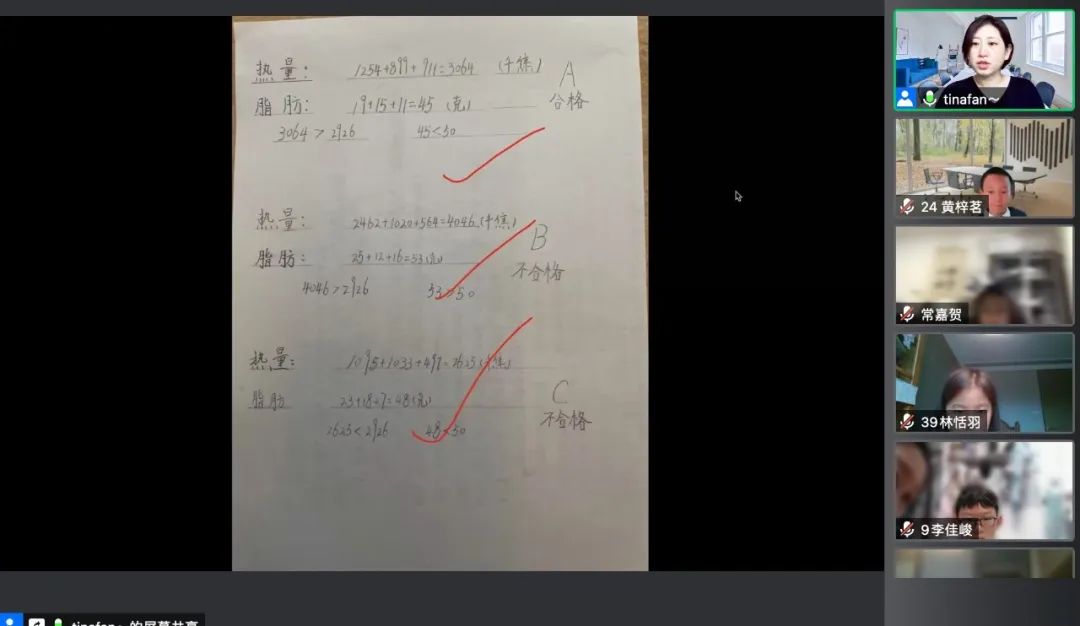 热量： 1254+899+911=3064 (千焦) A
脂肪： 19+15+11=45 (克) 合格
3064 > 2926 45<50
热量： 2462+1020+564=4046 (千焦) B
脂肪： 25+12+16=53 (克) 不合格
4046 >2926 53>50
热量： 1095+1033+497=2625 (千焦)
脂肪 23+18+7=48 (克) C
2625 < 2926 48<50 不合格
tinafan~
24 黄梓茗
常嘉贺
39林恬羽
9李佳峻
tinafan~ 的屏幕共享